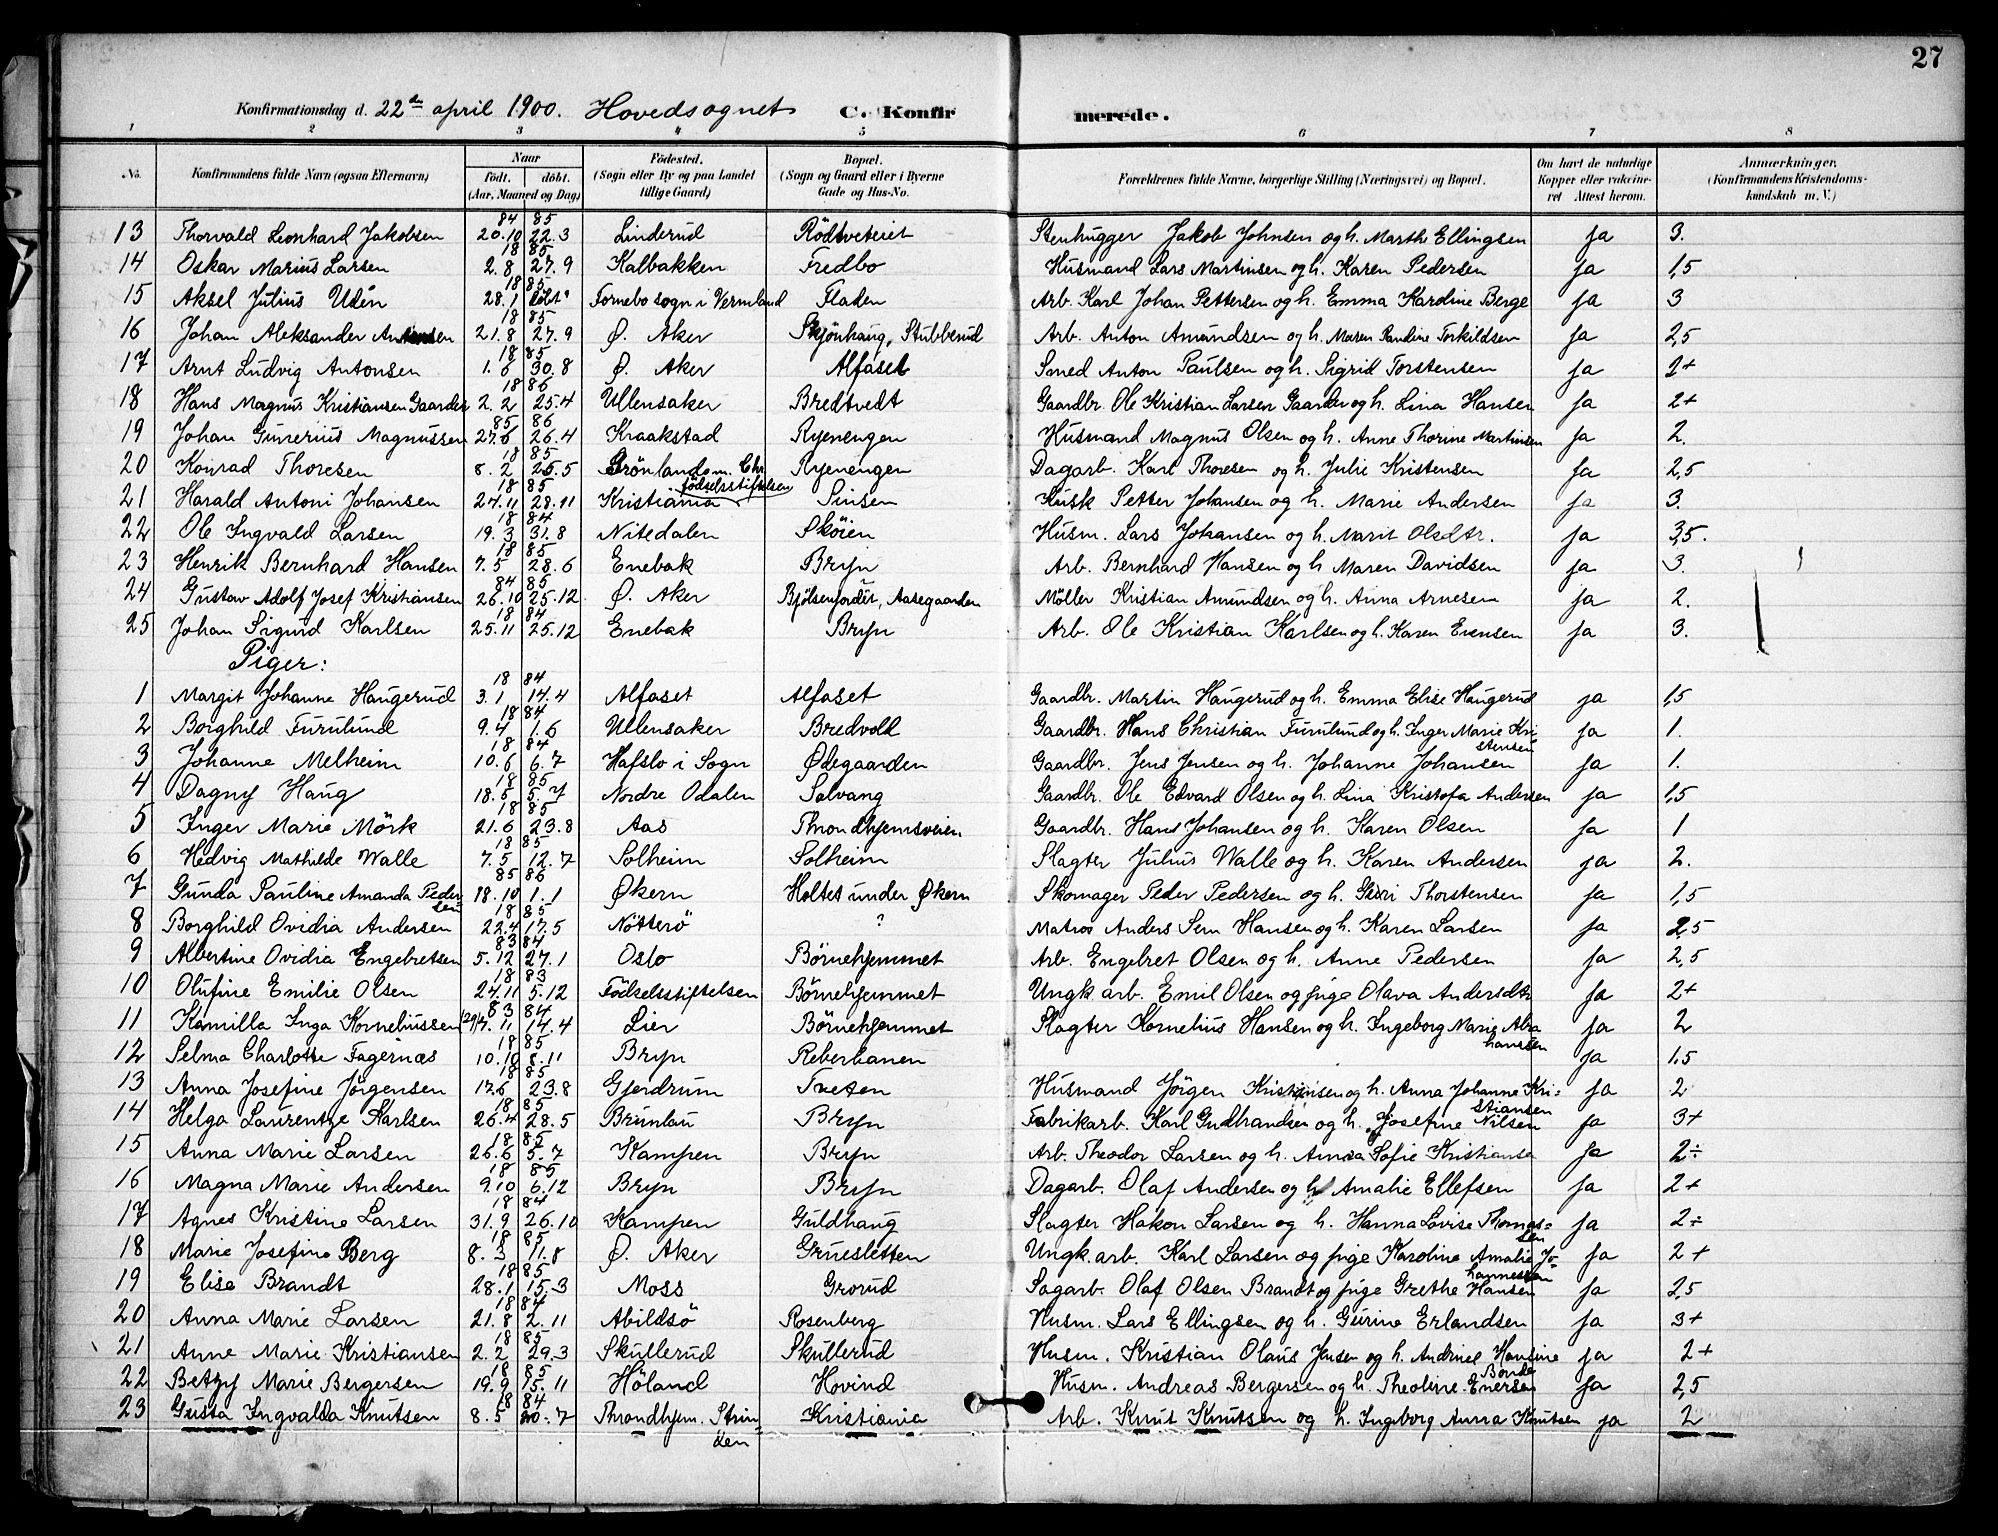 27
Konfirmationsdag d. 22de april 1900. Hovedsognet C. Konfir merede.
1 2 3 4 5 6 7 8
No. Konfirmandens fulde Navn (ogsaa Efternavn) Naar Født. døbt. (Aar, Maaned og Dag) Fødested. (Sogn eller By og paa Landet tillige Gaard) Bopæl. (Sogn og Gaard eller i Byerne Gade og Hus-No. Forældrenes fulde Navne, borgerlige Stilling (Næringsvei) og Bopæl. Om havt de naturlige Kopper eller vakcineret Attest herom. Anmærkninger. (Konfirmandens Kristendomskundskab m. V.)
13 Thorvald Leonhard Jakobsen 84 85 20.10 22.3 Linderud Rödtveteiet Stenhugger Jakob Johnsen og h. Marthe Ellingsen ja 3.
14 Oskar Marius Larsen 18 85 2.8 27.9 Kalbakken Fredbo Husmand Lars Martinsen og h. Karen Pedersen ja 1,5
15 Aksel Julius Udén 18 85 28.1 Fornebo sogn i Vermland Fladen Arb. Karl Johan Pettersen og h. Emma Karoline Berge ja 3
16 Johan Aleksander 18 85 21.8 27.9 Ø. Aker Skjönhaug, Stubberud Arb. Anton Amundsen og h. Maren Pandine Torkildsen ja 2,5
17 Arnt Ludvig Antonsen 18 85 1.6 30.8 Ø. Aker Alfaset Smed Anton Paulsen og h. Sigrid Torstensen ja 2+
18 Hans Magnus Kristiansen Gaarder 18 86 2.2 25.4 Ullensaker Bredtvedt Gaardbr. Ole Kristian Larsen Gaarder og h. Lina Hansen ja 2+
19 Johan Gunerius Magnussen 85 86 27.6 26.4 Kraakstad Ryenengen Husmand Magnus Olsen og h. Anne Thorine Martinsen ja 2.
20 Konrad Thoresen 18 85 8.2 25.5 Grönland om. Chr. fødselsstiftelsen Ryenengen Dagarb. Karl Thoresen og h. Julie Kristensen ja 2,5
21 Harald Antoni Johansen 18 85 24.11 28.11 Kristiania Sinsen Kusk Petter Johansen og h. Marie Andersen ja 3.
22 Ole Ingvald Larsen 18 84 19.3 31.8 Nitedalen Sköien Husm. Lars Johansen og h. Marit Olsdtr. ja 3,5.
23 Henrik Bernhard Hansen 18 85 7.5 28.6 Enebak Bryn Arb. Bernhard Hansen og h. Maren Davidsen ja 3.
24 Gustav Adolf Josef Kristiansen 84 85 26.10 25.12 Ø. Aker Bjölsenjordet, Aasegaarden Möller Kristian Amundsen og h. Anna Arnesen ja 2.
25 Johan Sigurd Karlsen 18 84 25.11 25.12 Enebak Bryn Arb. Ole Kristian Karlsen og h. Karen Evensen ja 3.
Piger:
1 Margit Johanne Haugerud 18 84 3.1 14.4 Alfaset Alfaset Gaardbr. Martin Haugerud og h. Emma Elise Haugerud ja 1,5
2 Borghild Furulund 18 84 9.4 1.6 Ullensaker Bredvold Gaardbr. Hans Christian Furulund og h. Inger Marie Kristensen ja 1.
3 Johanne Melheim 18 84 10.6 6.7 Hafslo i Sogn Ødegaarden Gaardbr. Jens Jensen og h. Johanne Johansen ja 1.
4 Dagny Haug 18 85 18.5 5.7 Nordre Odalen Solvang Gaardbr. Ole Edvard Olsen og h. Lina Kristofa Andersen ja 1,5
5 Inger Marie Mörk 18 85 21.6 23.8 Aas Throndhjemsveien Gaardbr. Hans Johansen og h. Karen Olsen ja 1
6 Hedvig Mathilde Walle 18 85 7.5 12.7 Solheim Solheim Slagter Julius Walle og h. Karen Andersen ja 2.
7 Gunda Pauline Amanda Pedersen 85 86 18.10 1.1 Økern Holtet under Økern Skomager Peder Pedersen og h. Thorstensen ja 1,5
8 Borghild Ovidia Andersen 18 85 22.4 17.5 Nötterö ? Matros Anders Sem Hansen og h. Karen Larsen ja 2,5
9 Albertine Ovidia Engebretsen 83 84 5.12 27.1 Oslo Börnehjemmet Arb. Engebret Olsen og h. Anne Pedersen ja 2,5
10 Olufine Emilie Olsen 18 83 24.11 5.12 Födselsstiftelsen Börnehjemmet Ungk. arb. Emil Olsen og pige Olava Andersdtr ja 2+
11 Kamilla Inga Korneliussen 83 84 14.4 Lier Börnehjemmet Slagter Kornelius Hansen og h. Ingeborg Marie Abrahamsen ja 2
12 Selma Charlotte Fagernæs 18 85 10.10 8.11 Bryn Reberbanen ja 1.5
13 Anna Josefine Jörgensen 18 85 17.6 23.8 Gjerdrum Tveten Husmand Jörgen Kristiansen og h. Anna Johanne Kristiansen ja 2
14 Helga Laurentze Karlsen 18 85 26.4 28.5 Brunlau Bryn Fabrikarb. Karl Gudbrandsen og h. Josefine Nilsen ja 3+
15 Anna Marie Larsen 18 85 26.6 5.7 Kampen Bryn Arb. Theodor Larsen og h. Anna Sofie Kristianse ja 2÷
16 Magna Marie Andersen 18 85 9.10 6.12 Bryn Bryn Dagarb. Olaf Andersen og h. Amalie Ellefsen ja 2+
17 Agnes Kristine Larsen 18 84 31.9 26.10 Kampen Guldhaug Slagter Hakon Larsen og h. Hanna Lovise Thomassen ja 2÷
18 Marie Josefine Berg 18 85 8.3 11.8 Ø. Aker Gruesletten Ungk. arb. Karl Larsen og pige Karoline Amalie Johannessen ja 2+
19 Elise Brandt 18 85 28.1 15.3 Moss Grorud Sagarb. Olaf Olsen Brandt og pige Grethe Hansen ja 2,5
20 Anna Marie Larsen 18 84 21.8 2.11 Abildsö Rosenberg Husm. Lars Ellingsen og h. Gurine Erlandsen ja 3+
21 Anne Marie Kristiansen 18 85 2.2 29.3 Skullerud Skullerud Husm. Kristian Olaus Jensen og h. Andrine Hansine Bonde ja 2+
22 Betzy Marie Bergersen 18 85 19.9 15.11 Höland Hovind Husm. Andreas Bergersen og h. Theoline Enersen ja 2,5
23 Gusta Ingvalda Knutsen 18 84 8.5 20.7 Throndhjem. Strinden Kristiania Arb. Knut Knutsen og h. Ingeborg Anna Knutsen ja 2